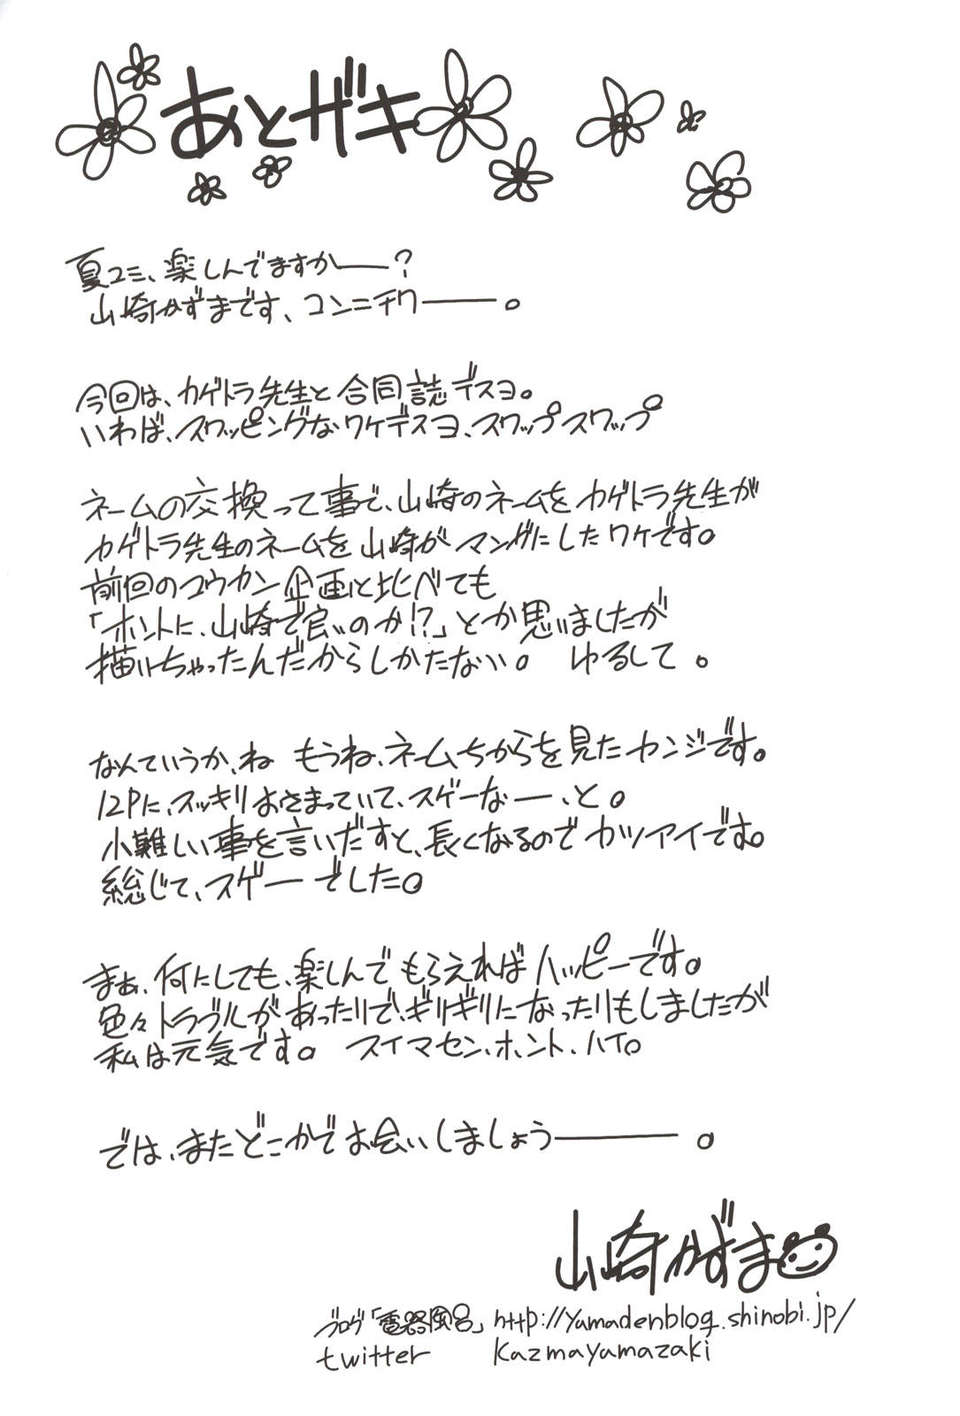 あとガキ
夏コミ、楽しんでますかー？
山崎かずまです、コンニチワー。
今回は、カゲトラ先生と合同誌デスヨ。
いわば、スワッピングなワケデスヨ、スワップスワップ
ネームの交換って事で、山崎のネームをカゲトラ先生が
カゲトラ先生のネームを山崎がマンガにしたワケです。
前回のコウカン企画と比べても
「ホントに、山崎で良いのか!?」とか思いましたが
描いちゃったんだからしかたない。 ゆるして。
なんていうか、ね もうね、ネームぢからを見たカンジです。
12Pに、スッキリおさまっていて、スゲーなー、と。
小難しい事を言いだすと、長くなるのでカツアイです。
総じて、スゲーでした。
まぁ、何にしても、楽しんでもらえればハッピーです。
色々トラブルがあったりで、ギリギリになったりもしましたが
私は元気です。 スイマセン、ホント、ハイ。
では、またどこかでお会いしましょうー。
山崎かずま
ブログ「電器風呂」 http://yamadenblog.shinobi.jp/
twitter kazmayamazaki